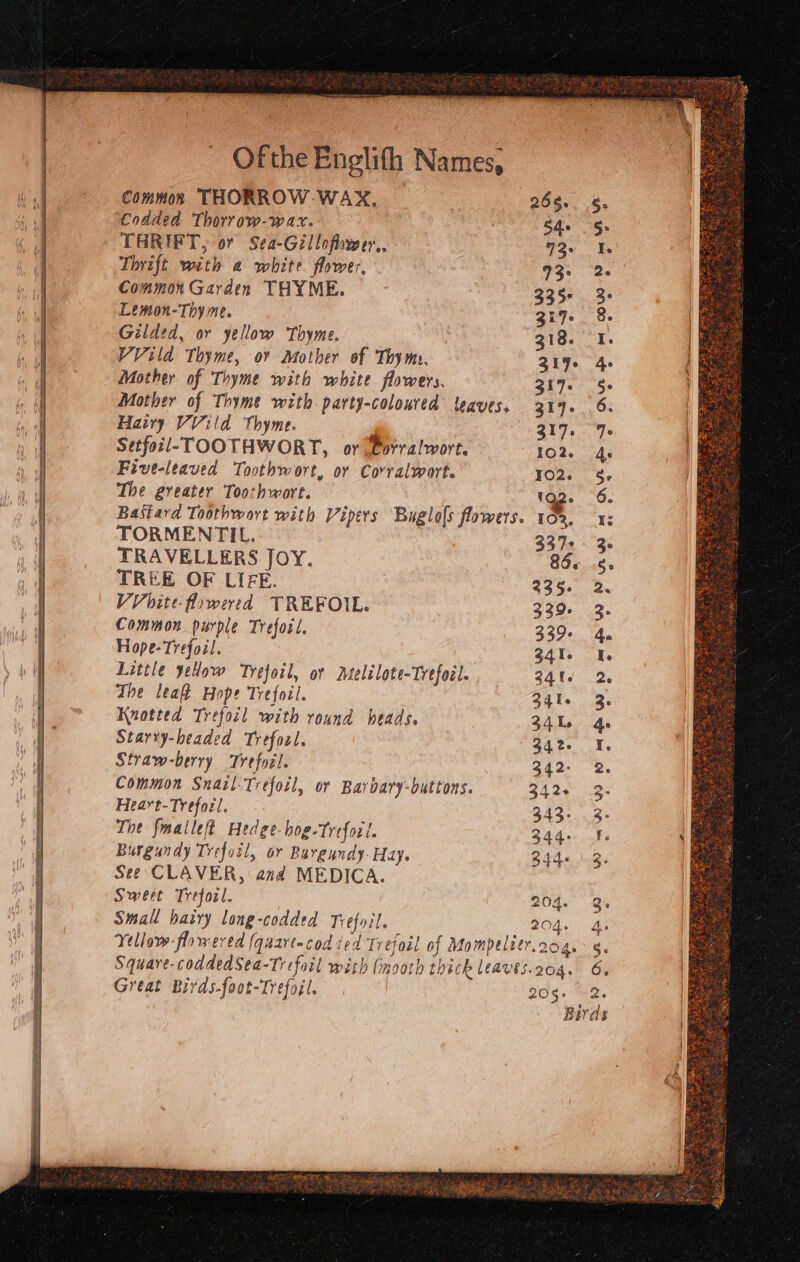 Of the Engliſh Names,
Common THORROW-WAX. 265. 5.
Codded Thorrow-wax. 54. 5.
THRIFT, or Sea-Gilloflower.. 73. 1.
Thrift with a white flower, 73. 2.
Common Garden THYME. 335. 3.
Lemon-Thyme. 317. 8.
Gilded, or yellow Thyme. 318. 1.
VVild Thyme, or Mother of Thyme. 317. 4.
Mother of Thyme with white flowers. 317. 5.
Mother of Thyme with party-coloured leaves. 317. 6.
Hairy VVild Thyme. 317. 7.
Setfoil-TOOTHWORT, or Corralwort. 102. 4.
Five-leaved Toothwort, or Corralwort. 102. 5.
The greater Toothwort. 102. 6.
Baſtard Toothwort with Vipers Bugloſs flowers. 103. 1.
TORMENTIL. 337. 3.
TRAVELLERS JOY. 86. 5.
TREE OF LIFE. 335. 2.
VVhite-flowered TREFOIL. 339. 3.
Common purple Trefoil. 339. 4.
Hope-Trefoil. 341. 1.
Little yellow Trefoil, or Melilote-Trefoil. 341. 2.
The leaſt Hope Trefoil. 341. 3.
Knotted Trefoil with round heads. 341. 4.
Starry-headed Trefoil. 342. 1.
Straw-berry Trefoil. 342. 2.
Common Snail-Trefoil, or Barbary-buttons. 342. 3.
Heart-Trefoil. 343. 3.
The ſmalleſt Hedge-hog-Trefoil. 344. 1.
Burgundy Trefoil, or Burgundy Hay. 344. 3.
See CLAVER, and MEDICA.
Sweet Trefoil. 204. 3.
Small hairy long-codded Trefoil. 204. 4.
Yellow-flowered ſquare-codded Trefoil of Mompelier. 204. 5.
Square-codded Sea-Trefoil with ſmooth thick leaves. 204. 6.
Great Birds-foot-Trefoil. 205. 2.
Birds